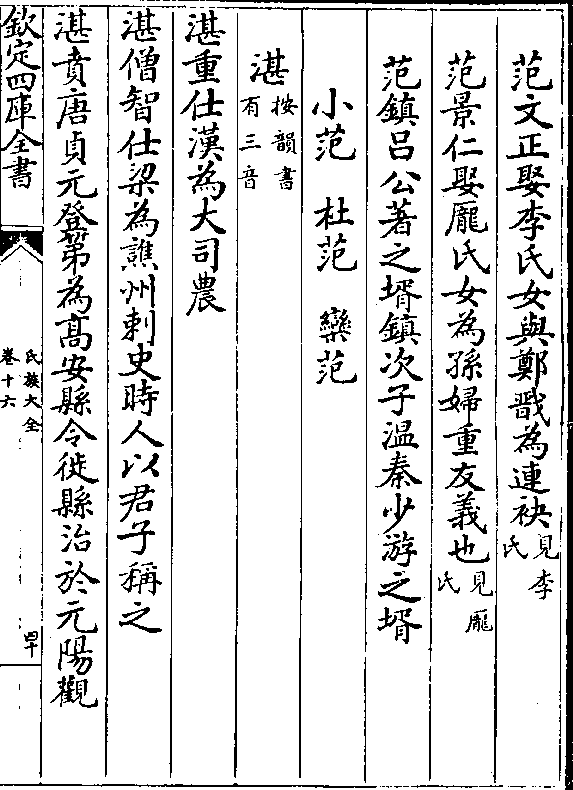 范文正娶李氏女與鄭戩為連袂見李氏
范景仁娶龎氏女為孫婦重友義也見龎氏
范鎮吕公著之壻鎮次子温秦少游之壻
小范　杜范　欒范
湛按韻書有三音
湛重仕漢為大司農
湛僧智仕梁為譙州刺史時人以君子稱之
湛賁唐貞元登第為髙安縣令徙縣治於元陽觀
欽定四庫全書
氏族大全
卷十六
四十